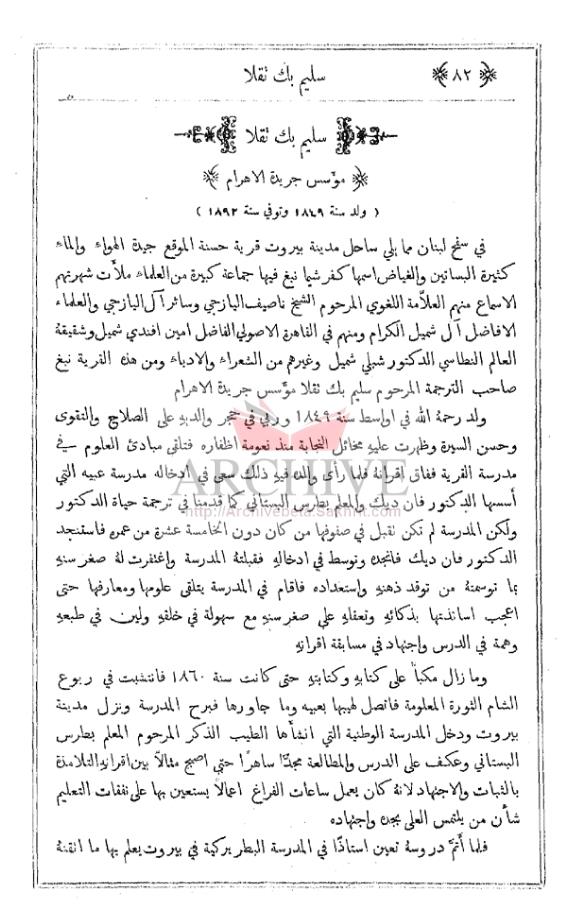 ﴿ ٨٢ ﴾ سليم بك تقلا
سليم بك تقلا
﴿ مؤسس جريدة الاهرام ﴾
( ولد سنة ١٨٤٩ وتوفي سنة ١٨٩٢ )
في سفح لبنان مما يلي ساحل مدينة بيروت قرية حسنة الموقع جيدة الهواء والماء
كثيرة البساتين والغياض اسمها كفرشيما نبغ فيها جماعة كبيرة من العلماء ملأت شهرتهم
الاسماع منهم العلاّمة اللغوي المرحوم الشيخ ناصيف اليازجي وسائر آل اليازجي والعلماء
الافاضل آل شميل الكرام ومنهم في القاهرة الاصولي الفاضل امين افندي شميل وشقيقهُ
العالم النطاسي الدكتور شبلي شميل وغيرهم من الشعراء والادباء ومن هذه القرية نبغ
صاحب الترجمة المرحوم سليم بك تقلا مؤسس جريدة الاهرام
ولد رحمهُ الله في اواسط سنة ١٨٤٩ وربي في حجر والديهِ على الصلاح والتقوى
وحسن السيرة وظهرت عليهِ مخائل النجابة منذ نعومة اظفاره فتلقى مبادئ العلوم في
مدرسة القرية ففاق اقرانهُ فلما رأى والده فيهِ ذلك سعى في ادخاله مدرسة عبيه التي
أسسها الدكتور فان ديك والمعلم بطرس البستاني كما قدمنا في ترجمة حياة الدكتور
ولكن المدرسة لم تكن تقبل في صفوفها من كان دون الخامسة عشرة من عمره فاستنجد
الدكتور فان ديك فانجده وتوسط في ادخالهِ فقبلتهُ المدرسة واغتفرت لهُ صغر سنهِ
بما توسمتهُ من توقد ذهنهِ واستعداده فاقام في المدرسة يتلقى علومها ومعارفها حتى
اعجب اساتذتها بذكائهِ وتعقلهِ على صغر سنهِ مع سهولة في خلقهِ ولين في طبعهِ
وهمة في الدرس واجتهاد في مسابقة اقرانهِ
وما زال مكباً على كتابهِ وكتابتهِ حتى كانت سنة ١٨٦٠ فانتشبت في ربوع
الشام الثورة المعلومة فاتصل لهيبها بعبيه وما جاورها فبرح المدرسة ونزل مدينة
بيروت ودخل المدرسة الوطنية التي انشأها الطيب الذكر المرحوم المعلم بطرس
البستاني وعكف على الدرس والمطالعة مجدّا ساهرًا حتى اصبح مثالاً بين اقرانهِ التلامذة
بالثبات والاجتهاد لانهُ كان يعمل ساعات الفراغ اعمالاً يستعين بها على نفقات التعليم
شأن من يلتمس العلى بجده واجتهاده
فلما أتمّ دروسهُ تعين استاذًا في المدرسة البطريركية في بيروت يعلم بها ما اتقنهُ
ARCHIVE
http://Archivebeta.Sakhrit.com